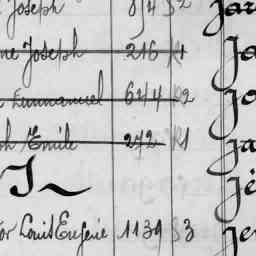 Joseph 814 S2 Jar
ne Joseph 216 R1 Ja
Emmanuel 644 R2 Jo
ph Emile 272 R1 Ja
J Jé
or Louis Eugénie 1139 S3 Je